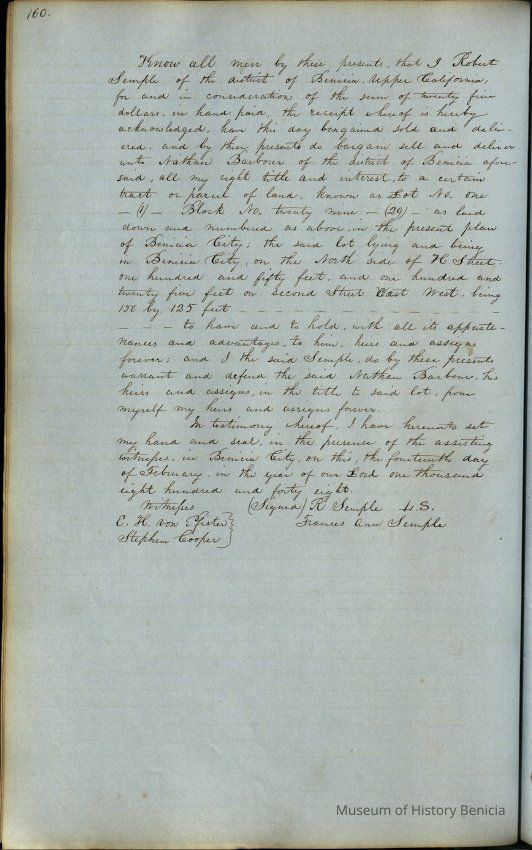 160.
Know all men by these presents, that I Robert
Semple of the district of Benicia, Upper California,
for and in consideration of the sum of twenty five
dollars, in hand paid, the receipt whereof is hereby
acknowledged, have this day bargained sold and deliv-
ered, and by these presents do bargain sell and deliver
unto Nathan Barbour of the district of Benicia afore-
said, all my right title and interest, to a certain
tract or parcel of land, known as Lot No. one
— (1) — Block No. twenty nine — (29) — as laid
down and numbered as above, in the present plan
of Benicia City; the said lot lying and being
in Benicia City, on the North side of H Street.
one hundred and fifty feet, and one hundred and
twenty five feet on second Street East West, being
150 by 125 feet — — — — — — — — —
— — — to have and to hold, with all its apparte-
nances and advantages, to him, heirs and assigns
forever; and I the said Semple, do by these presents
warrant and defend the said Nathan Barbour, his
heirs and assigns, in the title to said lot, from
myself my heirs and assigns forever.
In testimony whereof, I have hereunto set
my hand and seal, in the presence of the assisting
witnesses, in Benicia City, on this, the fourteenth day
of February, in the year of our Lord one thousand
eight hundred and forty eight.
Witnesses (Signed) R Semple L.S.
E. H. von Pfister } Frances Ann Semple
Stephen Cooper }
Museum of History Benicia